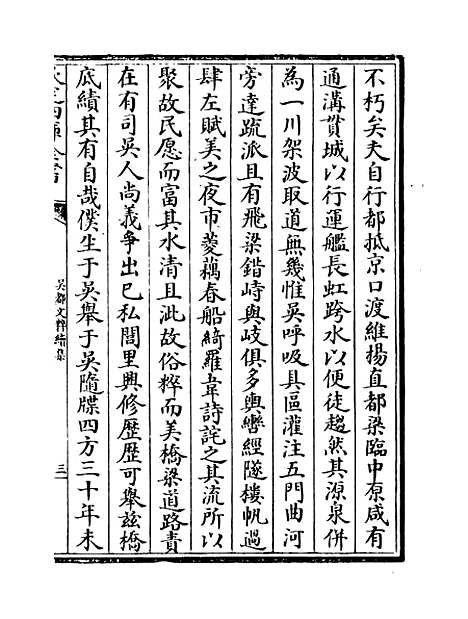 不朽矣夫自行都抵京口渡維楊直都梁臨中原咸有
通溝貫城以行運艦長虹跨水以便徒趨然其源泉併
為一川架波取道無幾惟吳呼吸具區灌注五門曲河
旁達䟽派且有飛梁錯峙與岐俱多輿轡經隧樓帆過
肆左賦美之夜市菱藕春船綺羅韋詩詫之其流所以
聚故民愿而富其水清且泚故俗粹而美橋梁道路責
在有司吳人尚義爭出已私閭里興修歷歷可舉兹橋
底績其有自哉僕生于吳舉于吳隨牒四方三十年未
欽定四庫全書
吳都文粹續集
三